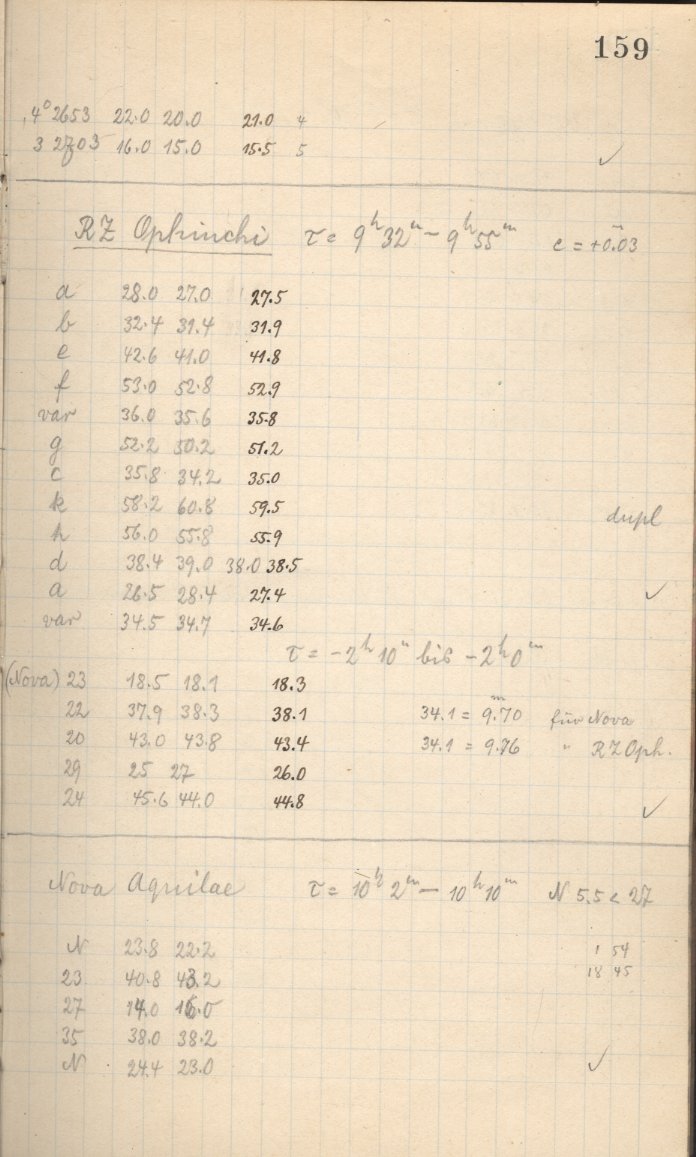 159
4° 2653 22.0 20.0 21.0 4
3 2703 16.0 15.0 15.5 5 ✓
RZ Ophiuchi τ = 9ʰ32ᵐ – 9ʰ55ᵐ c = +0.03ᵐ
a 28.0 27.0 27.5
b 32.4 31.4 31.9
e 42.6 41.0 41.8
f 53.0 52.8 52.9
var 36.0 35.6 35.8
g 52.2 50.2 51.2
c 35.8 34.2 35.0
k 58.2 60.8 59.5
dupl
h 56.0 55.8 55.9
d 38.4 39.0 38.0 38.5
a 26.5 28.4 27.4 ✓
var 34.5 34.7 34.6
τ = -2ʰ10ᵐ bis -2ʰ0ᵐ
(Nova) 23 18.5 18.1 18.3
22 37.9 38.3 38.1 34.1 = 9.70ᵐ für Nova
20 43.0 43.8 43.4 34.1 = 9.76 " RZ Oph.
29 25 27 26.0
24 45.6 44.0 44.8 ✓
Nova Aquilae τ = 10ʰ2ᵐ – 10ʰ10ᵐ N 5.5 < 27
N 23.8 22.2 1 54
23 40.8 43.2 18 45
27 14.0 16.0
35 38.0 38.2
N 24.4 23.0 ✓